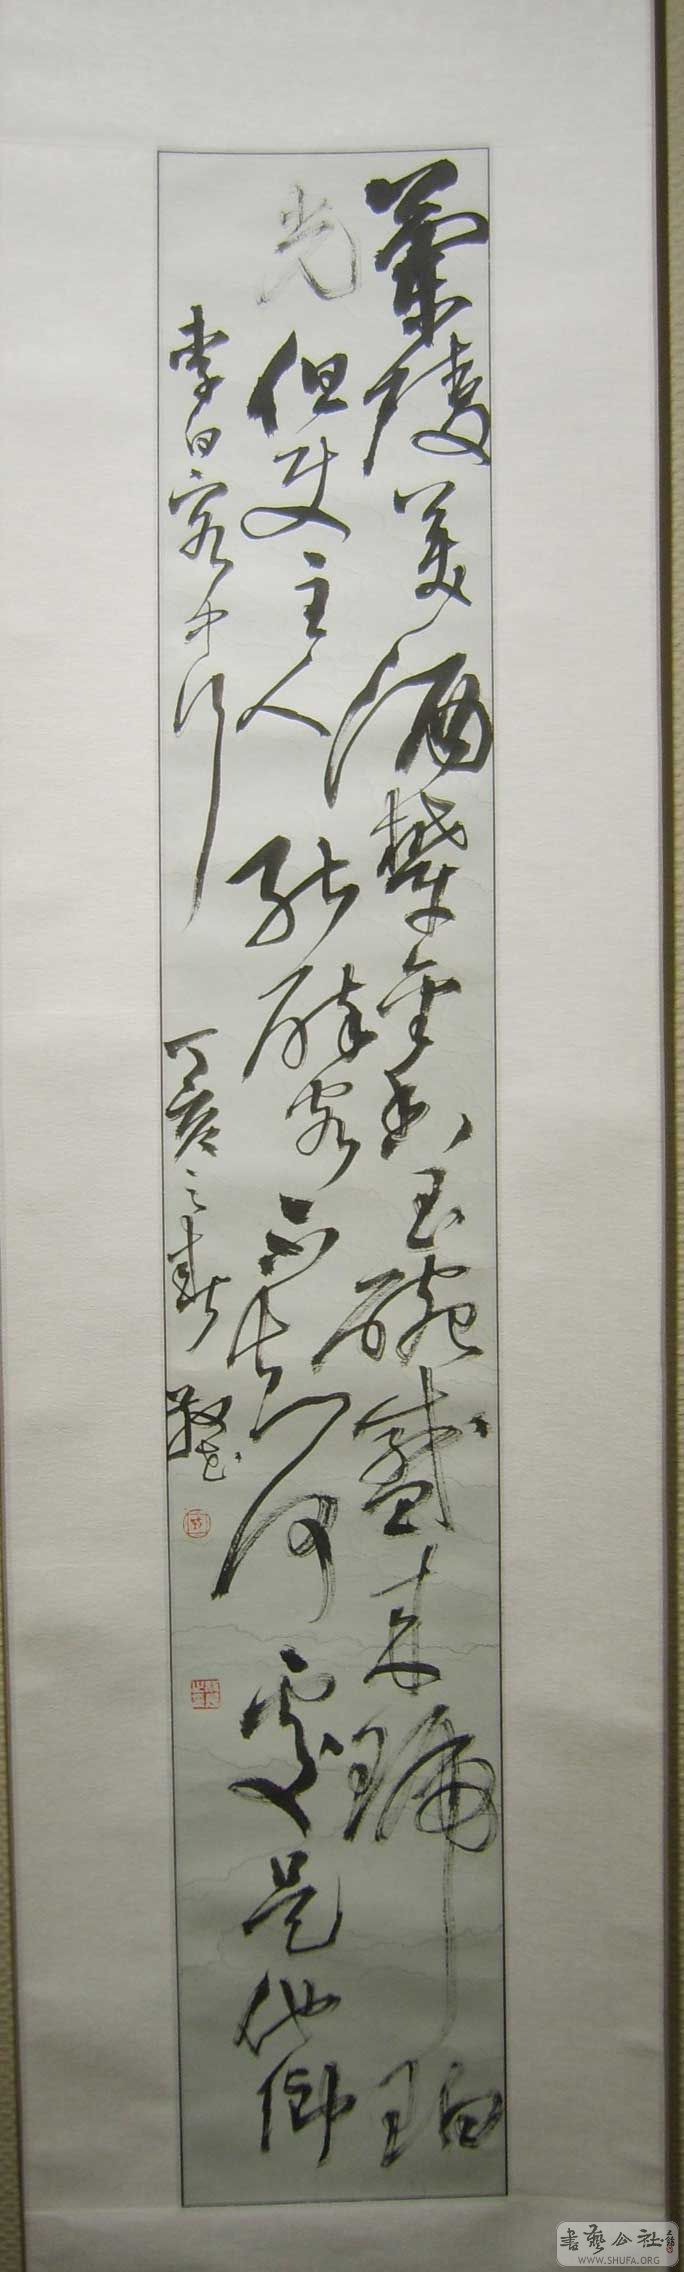 蘭陵美酒鬱金香玉碗盛来琥珀
光但使主人能醉客不知何處是他鄉
李白客中行 丁亥之春
書藝公社
WWW.SHUFA.ORG